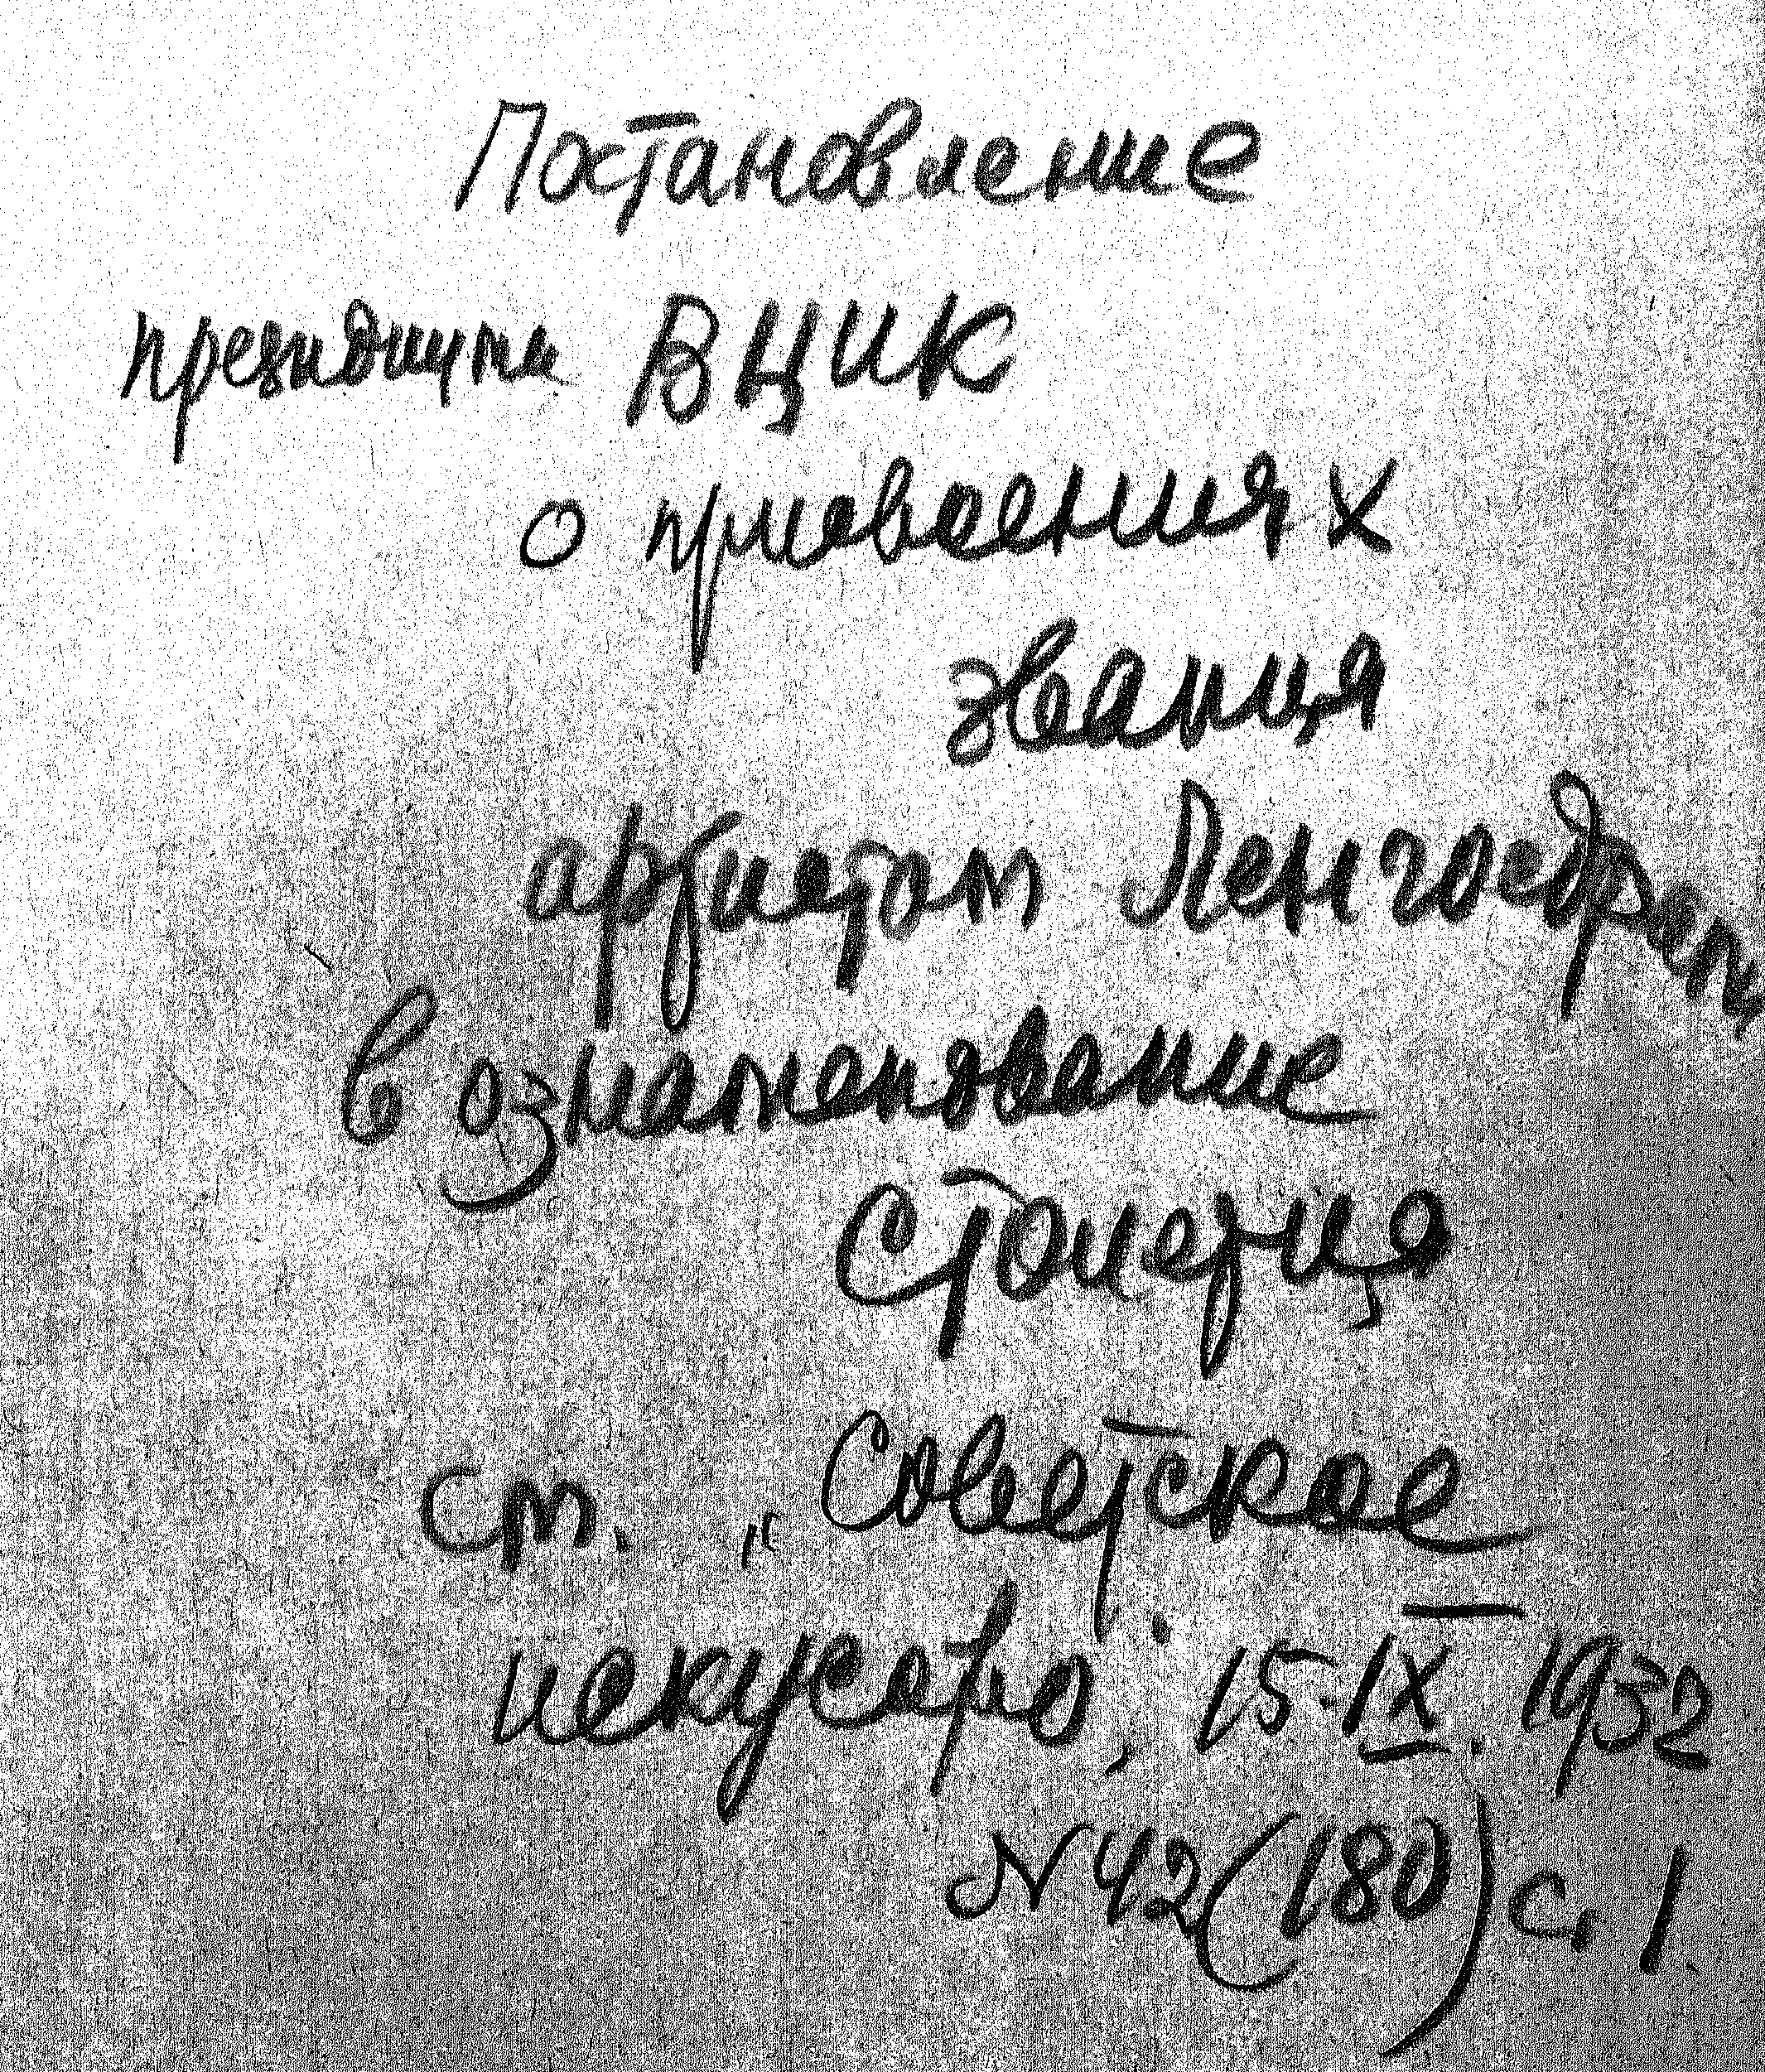 Постановление
президиума ВЦИК
о присвоениях
звания
артистам Ленгосдрамы
в ознаменование
столетия
см. „Советское
искусство", 15.IX.1932
N42(180) с. 1